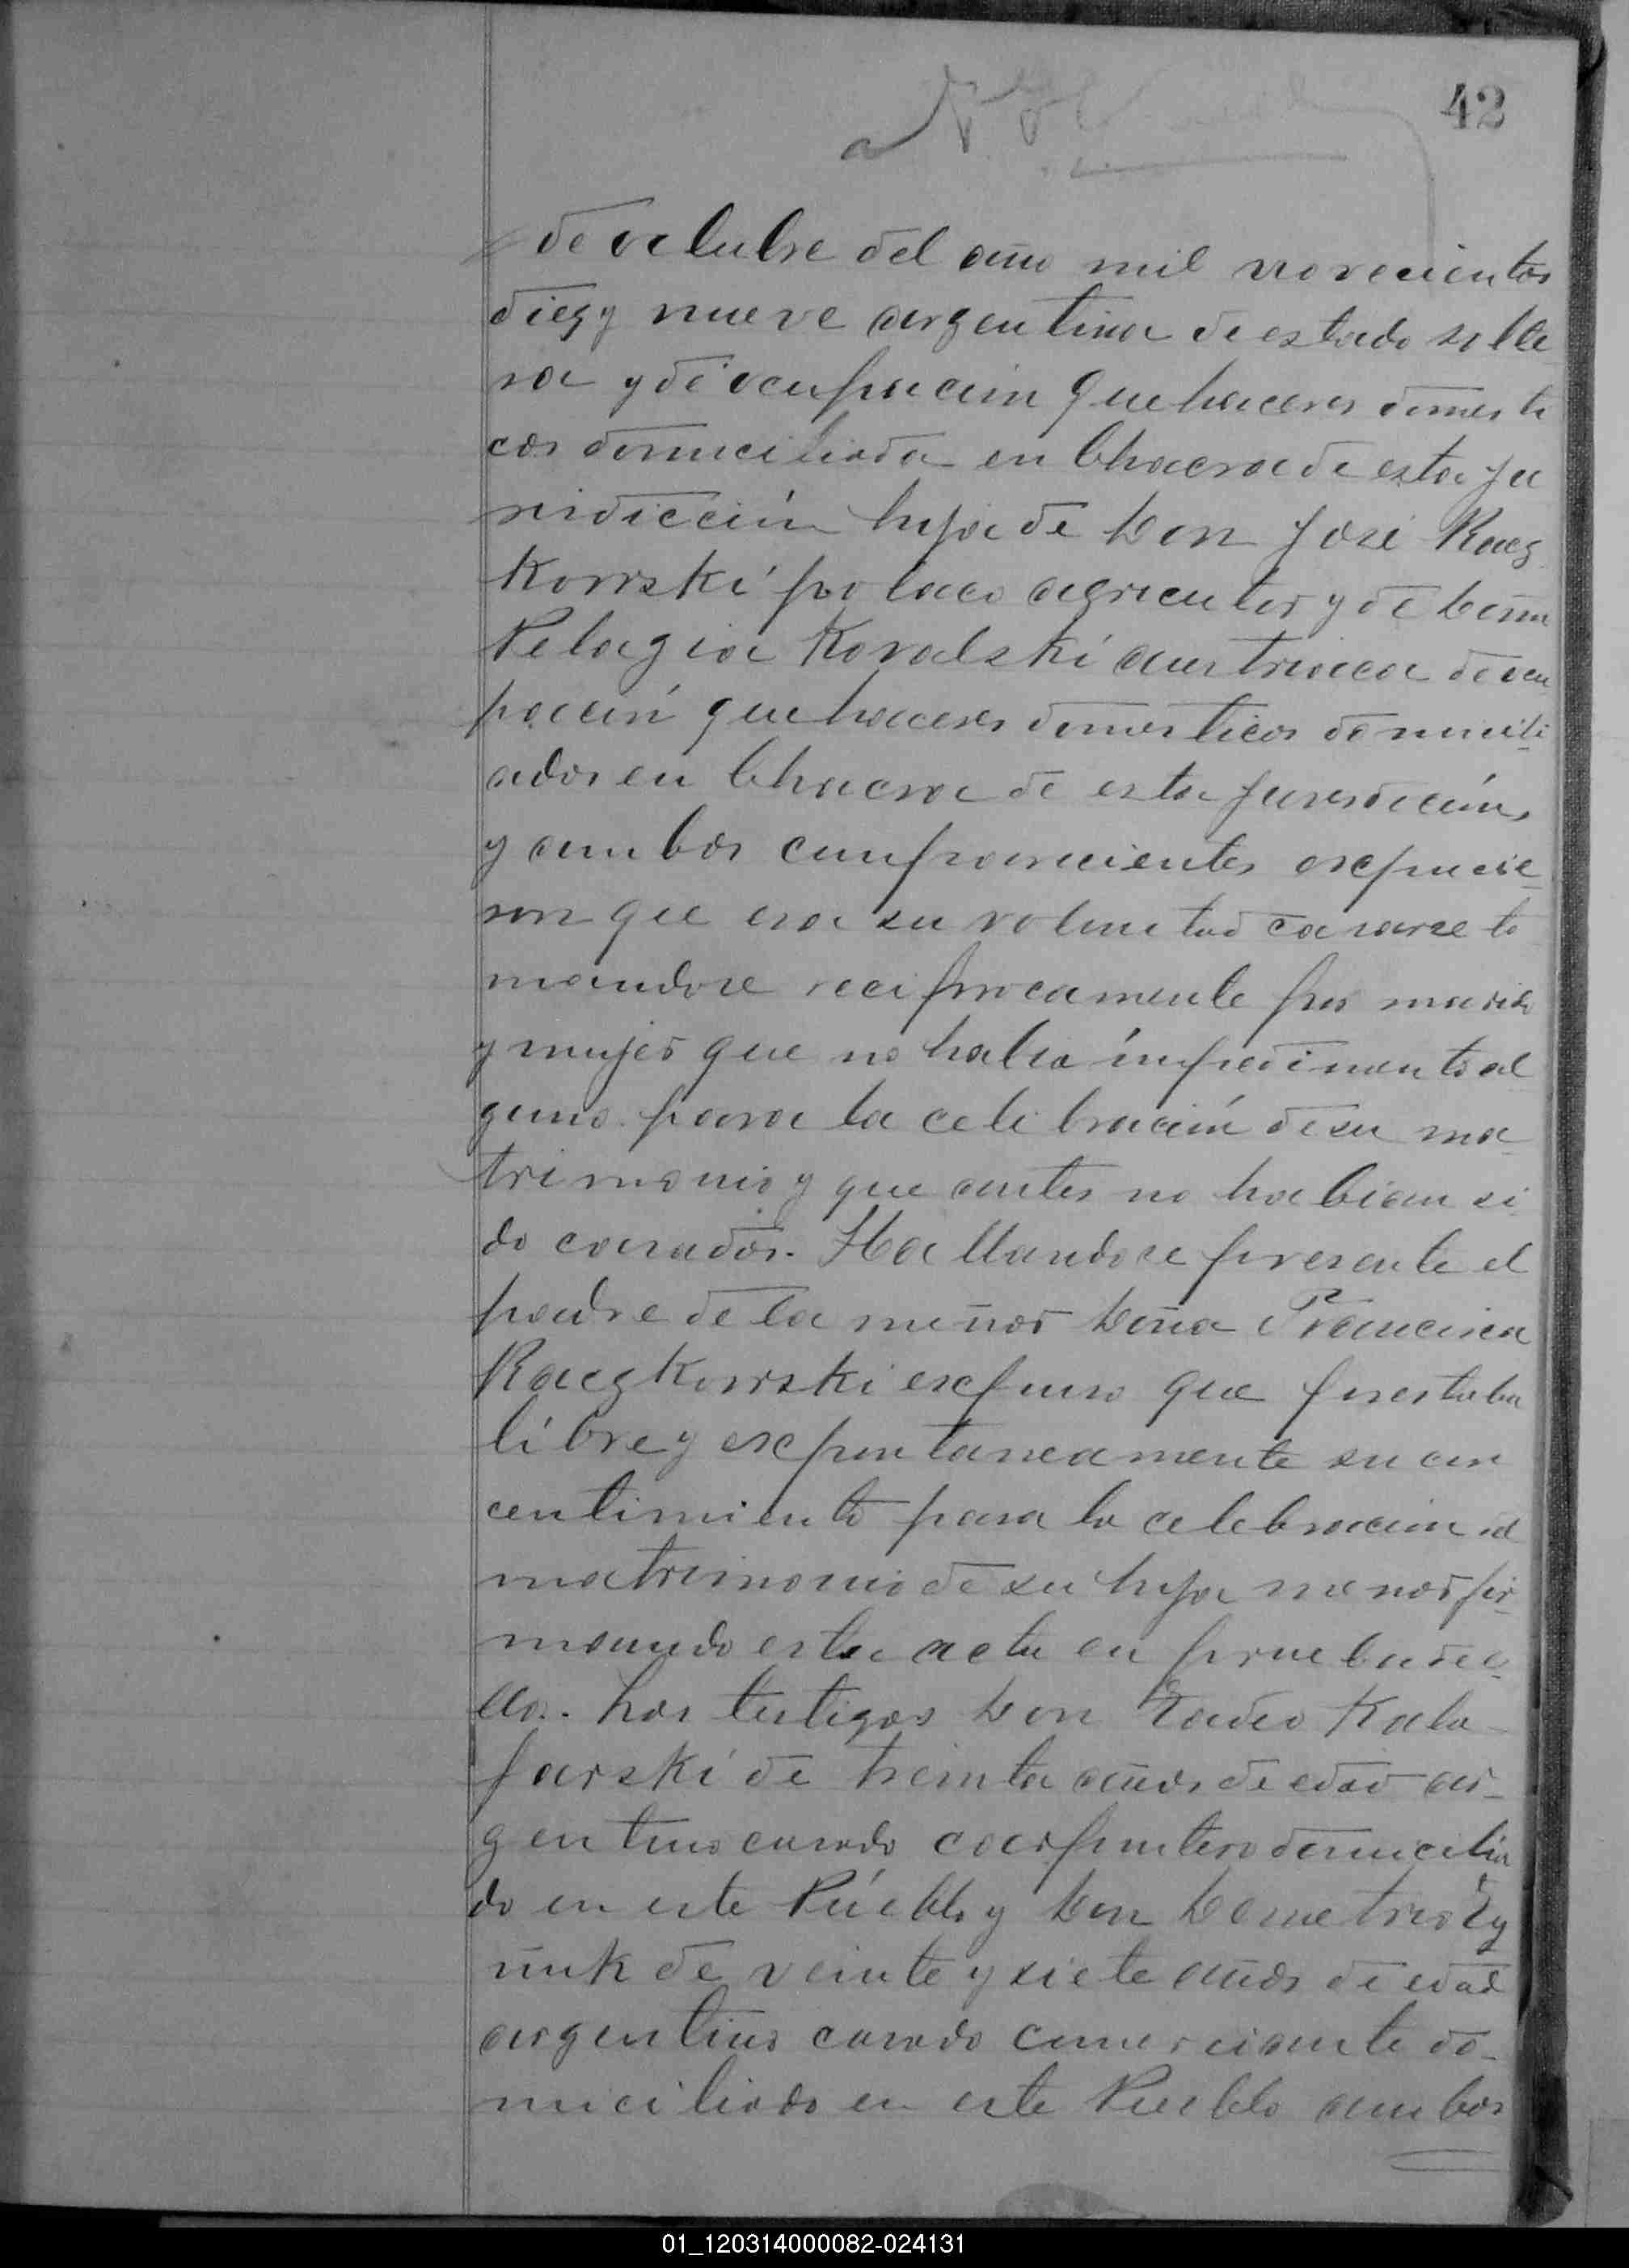 42
de octubre del año mil novecientos
diez y nueve argentina de estado solte
ra y de ocupación quehaceres domesti
cos domiciliada en Chacra de esta ju
risdicción hija de Don José Racz
Kowski polaco agricultor y de Doña
Pelagia Kovalski austriaca de ocu
pación quehaceres domesticos domicili
ados en Chacra de esta jurisdicción,
y ambos comparecientes expusie
ron que era su voluntad casarse to
mandose reciprocamente por marido
y mujer que no habia impedimento al
guno para la celebración de su ma
trimonio y que antes no habian si
do casados. Hallandose presente el
padre de la menor Doña Francisca
Raczkowski expuso que prestaba
libre y expontaneamente su con
centimiento para la celebración del
matrimonio de su hija menor fir
mando esta acta en prueba de e
llo. Los testigos Don Tadeo Kala
farski de treinta años de edad ar
gentino casado carpintero domicilia
do en este Pueblo y Don Demetrio
de veinte y siete años de edad
argentino casado comerciante do
miciliado en este Pueblo ambos
01_120314000082-024131